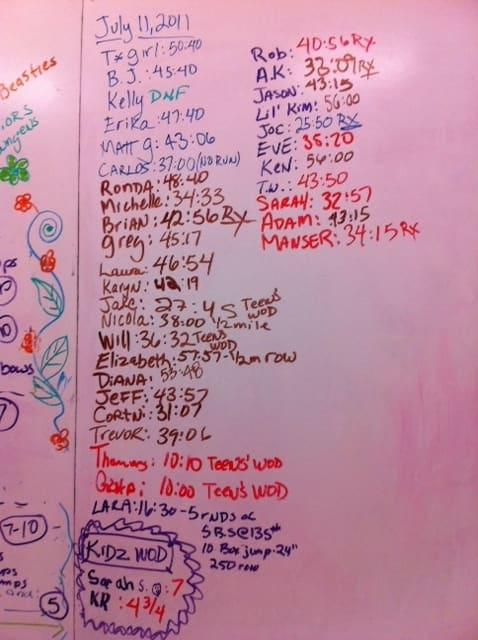 Beasties
July 11, 2011
T*girl: 50:40
B.J.: 45:40
Kelly DNF
Erika: 47:40
Matt g: 43:06
Carlos: 37:00 (No Run)
Ronda: 48:40
Michelle: 34:33
Brian: 42:56 Rx
greg: 45:17
Laura: 46:54
Karyn: 42:19
Jake: 27:45 Teen's WOD
Nicola: 38:00 1/2 mile
Will: 36:32 Teen's WOD
Elizabeth: 57:57 - 1/2 m row
Diana: 53:48
Jeff: 43:57
Cortni: 31:07
Trevor: 39:06
10:10 Teens' WOD
10:00 Teen's WOD
Lara: 16:30 - 5 rnds of
5 BS@135#
10 Box jump - 24"
250 row
Kidz WOD
Sarah S. @: 7
KR: 4 3/4
Rob: 40:56 Rx
A.K: 33:09 Rx
Jason: 43:15
Lil' Kim: 56:00
Joe: 25:50 Rx
Eve: 38:20
Ken: 54:00
T.W.: 43:50
Sarah: 32:57
Adam: 43:15
Manser: 34:15 Rx
7-10
5